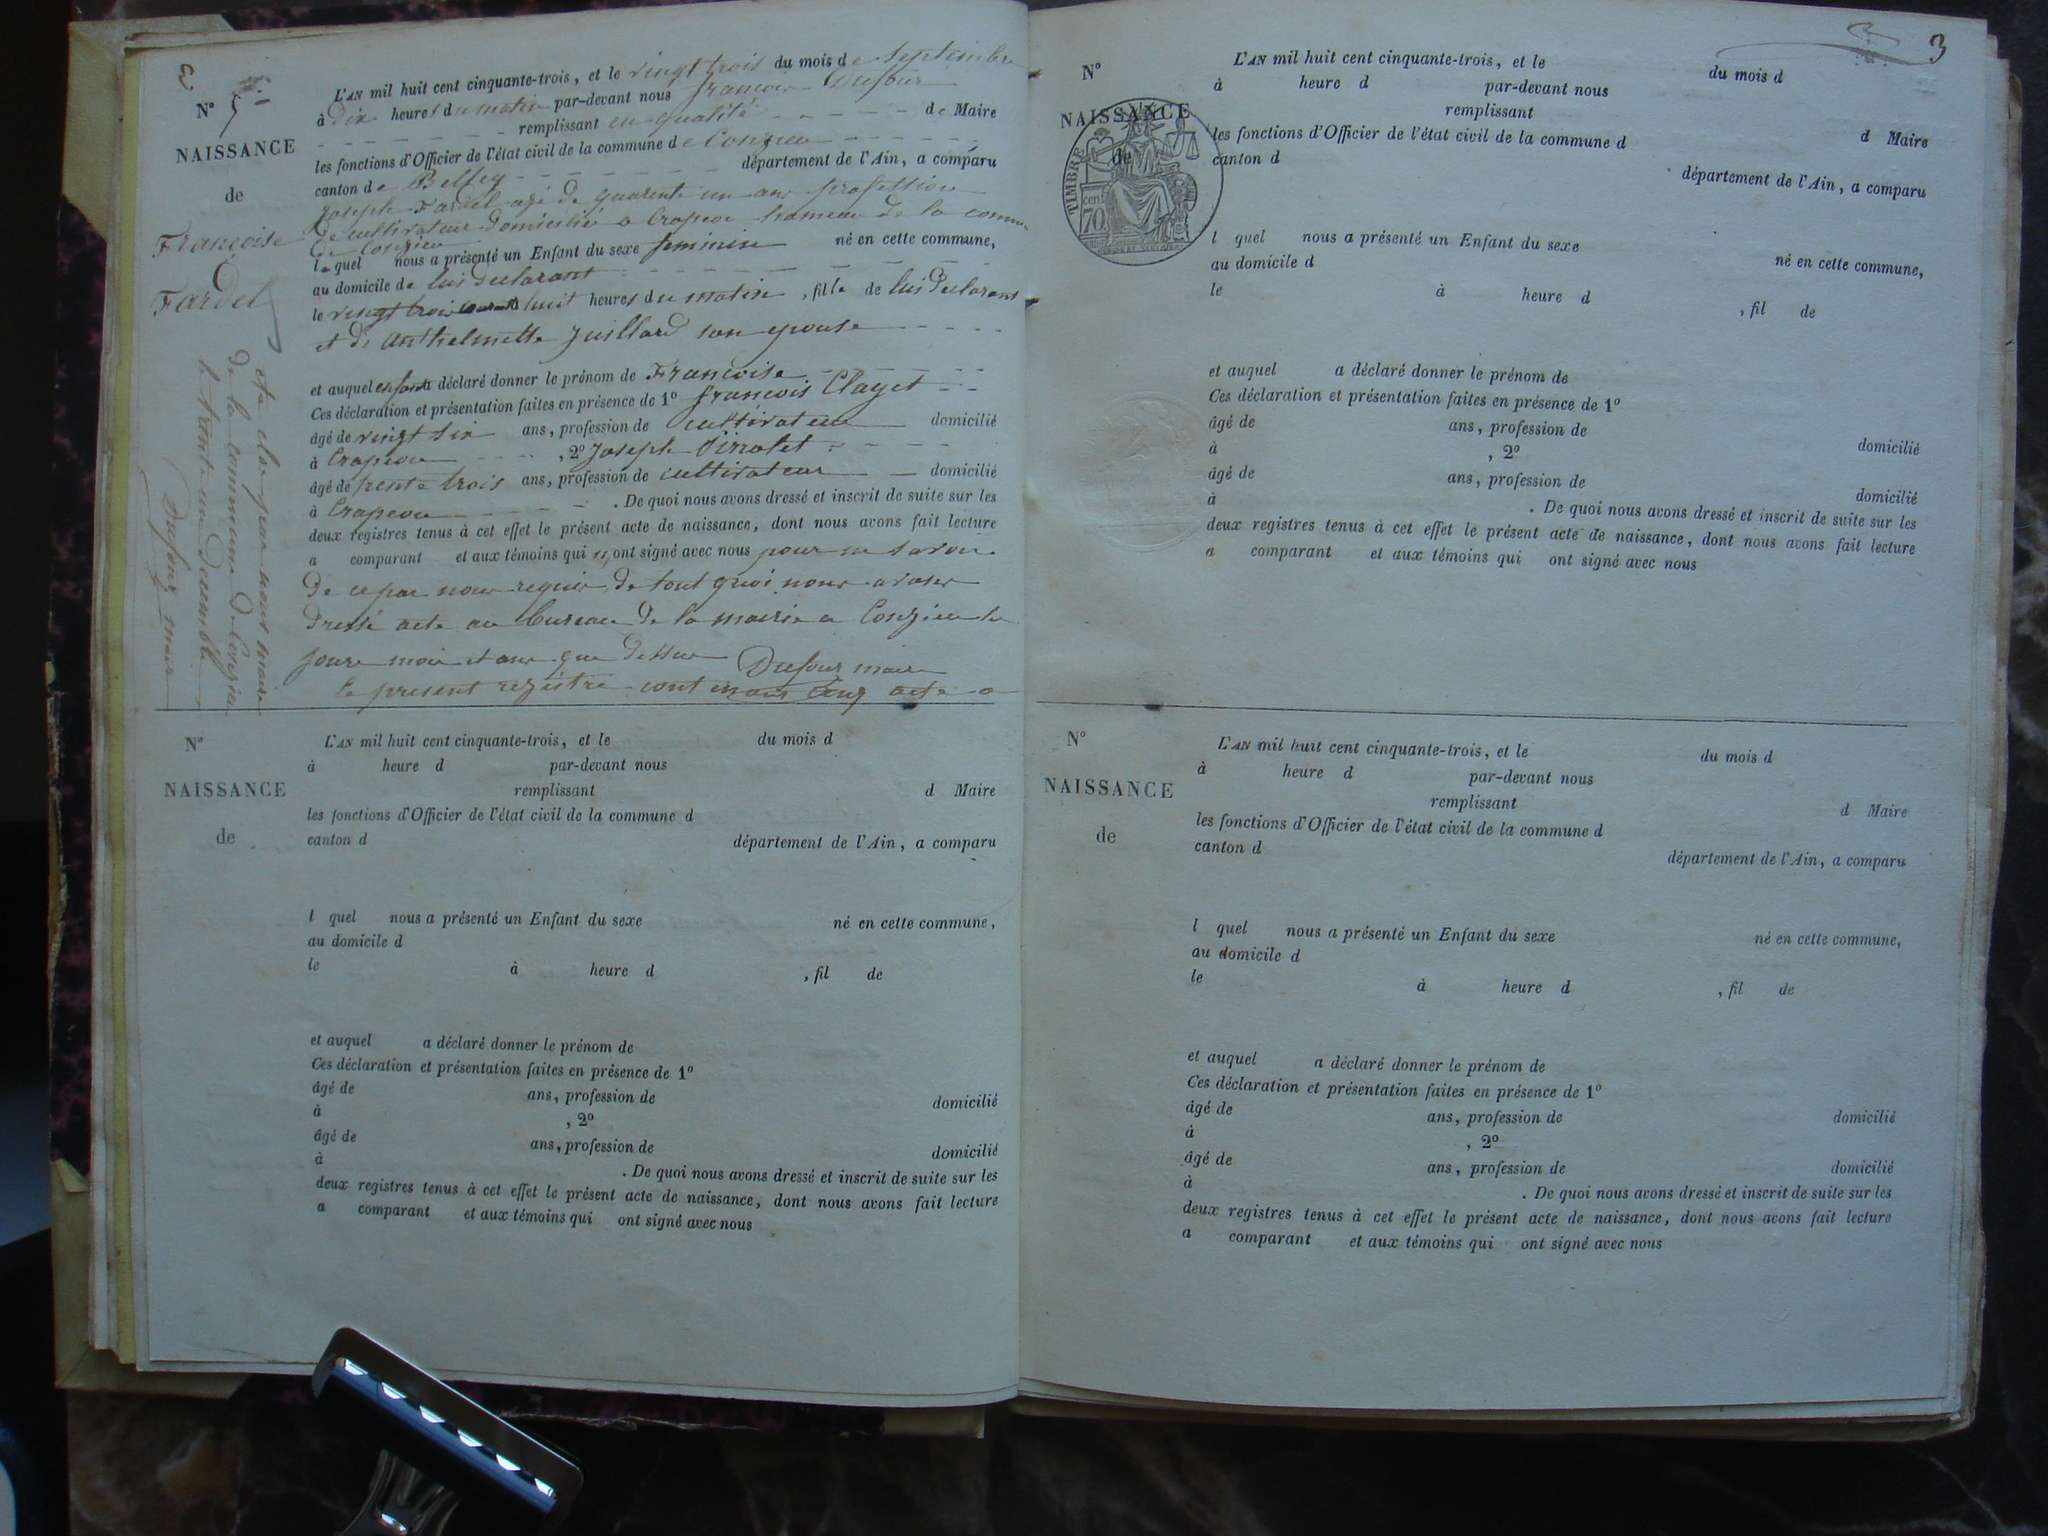 N° 5
NAISSANCE
de
Françoise
Fardel
L'AN mil huit cent cinquante-trois, et le vingt trois du mois de Septembre
à dix heures du matin par-devant nous françois Dufour
remplissant en qualité de Maire
les fonctions d'Officier de l'état civil de la commune de Conzieu
canton de Belley département de l'Ain, a comparu
Joseph Fardel agé de quarente un ans profession
de cultivateur domicilié a Crapeou hameau de la commune
de Conzieu
lequel nous a présenté un Enfant du sexe feminin né en cette commune,
au domicile de lui declarant
le vingt trois huit heures du matin, fille de lui declarant
et de Anthelmette Juillard son epouse
et auquel enfant a déclaré donner le prénom de Françoise
Ces déclaration et présentation faites en présence de 1° françois Clayet
âgé de vingt six ans, profession de cultivateur domicilié
à Crapeou, 2° Joseph
âgé de trente trois ans, profession de cultivateur domicilié
à Crapeou. De quoi nous avons dressé et inscrit de suite sur les
deux registres tenus à cet effet le présent acte de naissance, dont nous avons fait lecture
a comparant et aux témoins qui n'ont signé avec nous pour ne savoir
de ce par nous requis de tout quoi nous avons
dressé acte au bureau de la mairie a Conzieu le
jour mois et an que dessus Dufour maire
Le present registre contenans cinq acte a
ete clos par nous maire
de la commune de Conzieu
le trente un decembre
Dufour maire
N°
NAISSANCE
de
L'AN mil huit cent cinquante-trois, et le du mois d
à heure d par-devant nous
remplissant d Maire
les fonctions d'Officier de l'état civil de la commune d
canton d département de l'Ain, a comparu
l quel nous a présenté un Enfant du sexe né en cette commune,
au domicile d
le à heure d , fil de
et auquel a déclaré donner le prénom de
Ces déclaration et présentation faites en présence de 1°
âgé de ans, profession de domicilié
à , 2°
âgé de ans, profession de domicilié
à . De quoi nous avons dressé et inscrit de suite sur les
deux registres tenus à cet effet le présent acte de naissance, dont nous avons fait lecture
a comparant et aux témoins qui ont signé avec nous
3
N°
NAISSANCE
de
TIMBRE
70 cent
L'AN mil huit cent cinquante-trois, et le du mois d
à heure d par-devant nous
remplissant d Maire
les fonctions d'Officier de l'état civil de la commune d
canton d département de l'Ain, a comparu
l quel nous a présenté un Enfant du sexe né en cette commune,
au domicile d
le à heure d , fil de
et auquel a déclaré donner le prénom de
Ces déclaration et présentation faites en présence de 1°
âgé de ans, profession de domicilié
à , 2°
âgé de ans, profession de domicilié
à . De quoi nous avons dressé et inscrit de suite sur les
deux registres tenus à cet effet le présent acte de naissance, dont nous avons fait lecture
a comparant et aux témoins qui ont signé avec nous
N°
NAISSANCE
de
L'AN mil huit cent cinquante-trois, et le du mois d
à heure d par-devant nous
remplissant d Maire
les fonctions d'Officier de l'état civil de la commune d
canton d département de l'Ain, a comparu
l quel nous a présenté un Enfant du sexe né en cette commune,
au domicile d
le à heure d , fil de
et auquel a déclaré donner le prénom de
Ces déclaration et présentation faites en présence de 1°
âgé de ans, profession de domicilié
à , 2°
âgé de ans, profession de domicilié
à . De quoi nous avons dressé et inscrit de suite sur les
deux registres tenus à cet effet le présent acte de naissance, dont nous avons fait lecture
a comparant et aux témoins qui ont signé avec nous